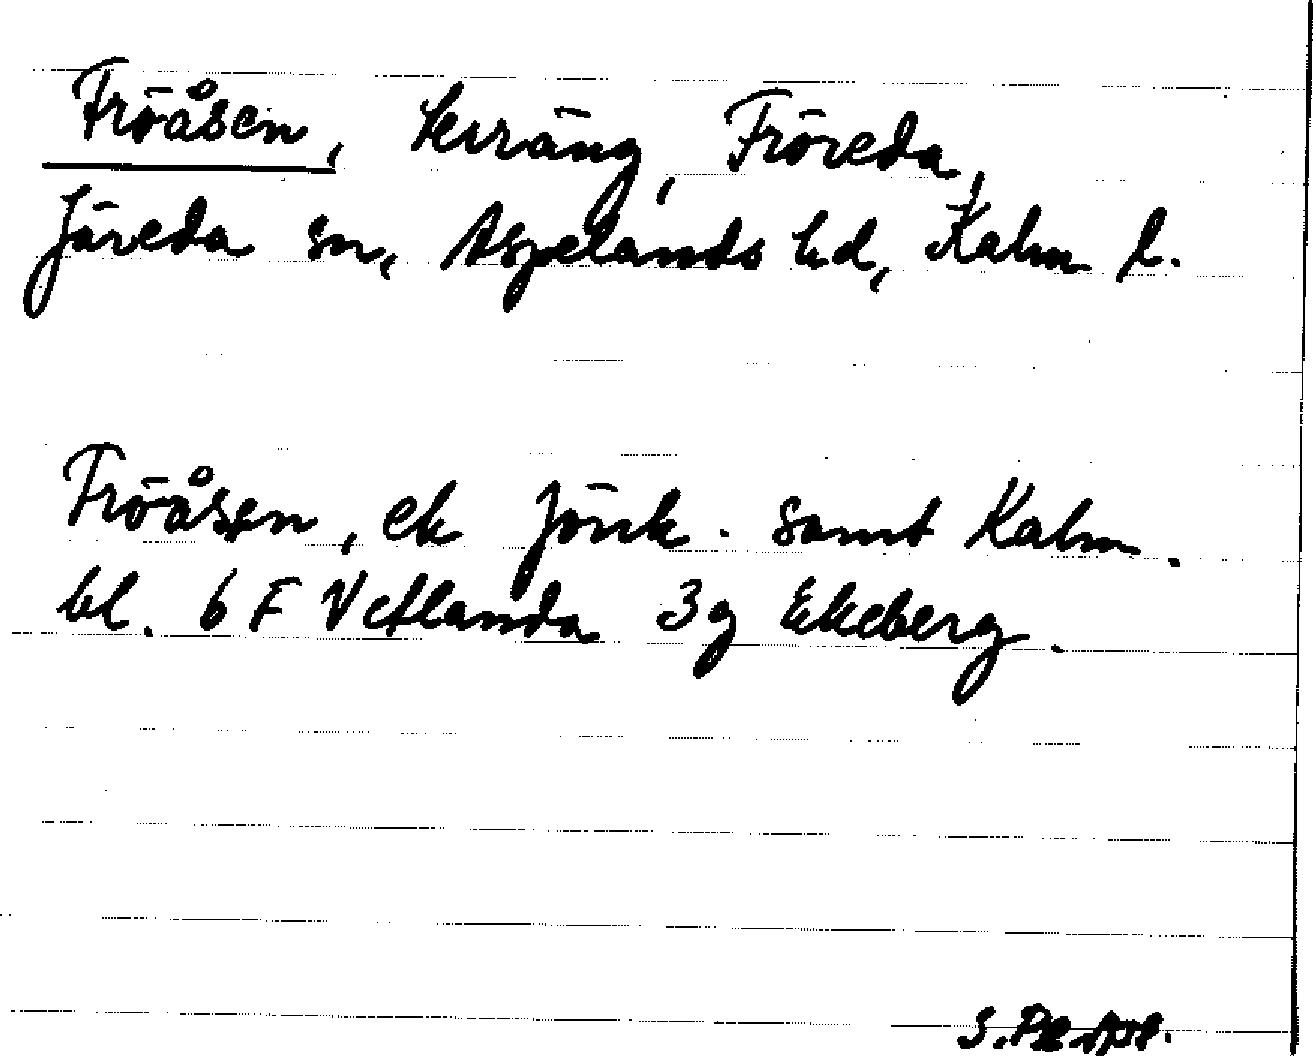 Fröåsen, terräng, Fröreda,
Järeda sn, Aspelands hd, Kalm l.
Fröåsen, ek Jönk. samt Kalm.
bl. 6 F Vetlanda 3g Ekeberg.